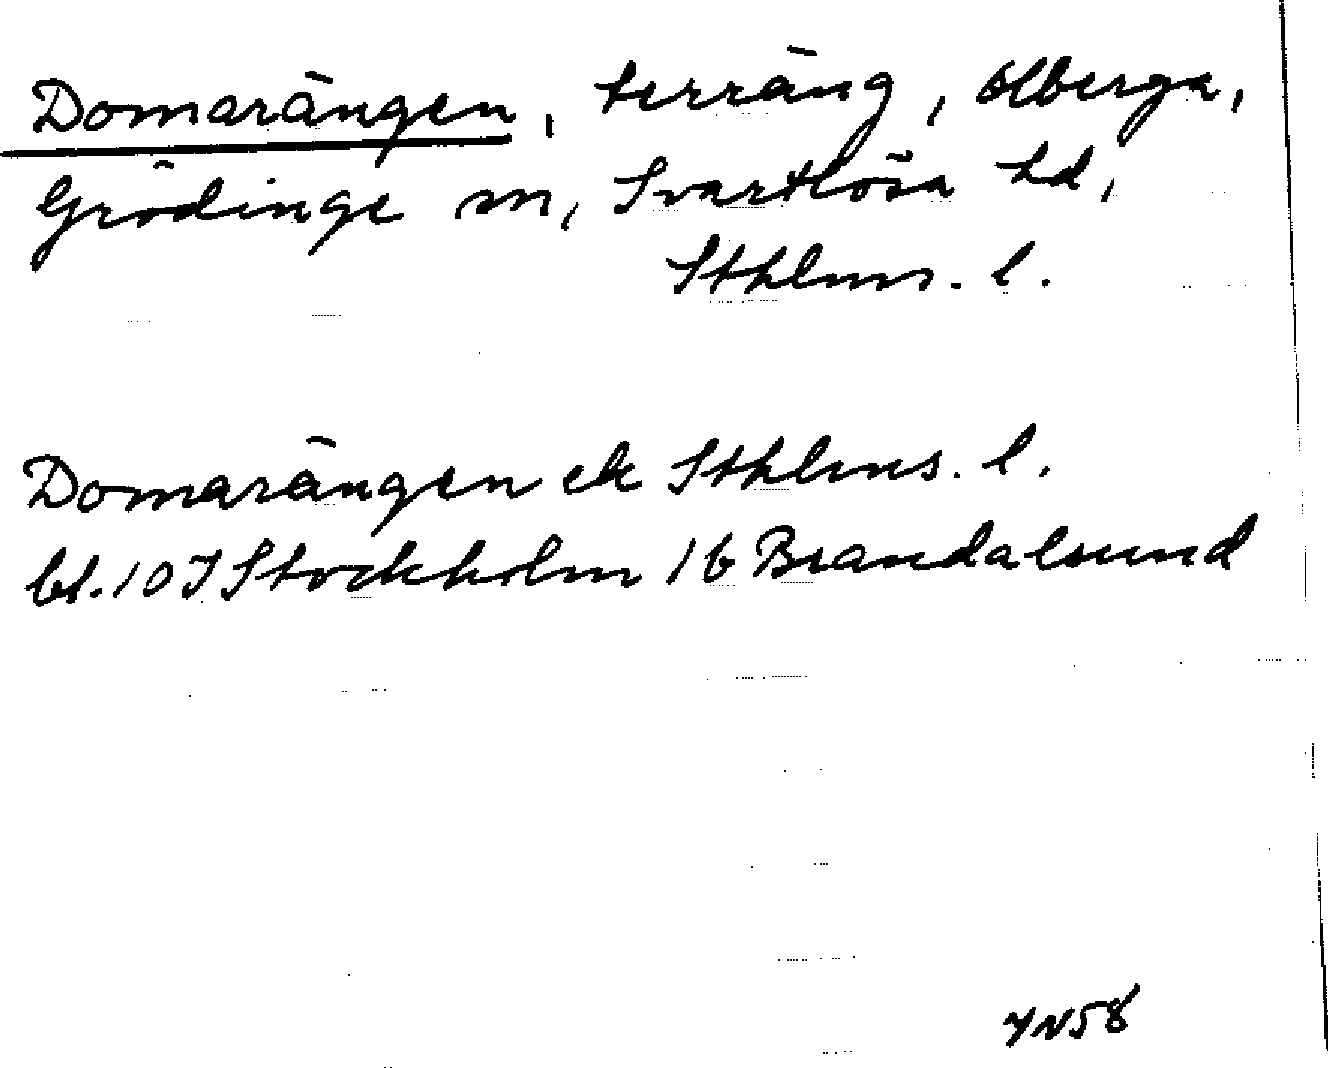 Domarängen, terräng, Olberga,
Grödinge sn, Svartlösa hd,
Sthlms. l.
Domarängen ek Sthlms. l.
bl. 10 I Stockholm 1b Brandalsund
YN58